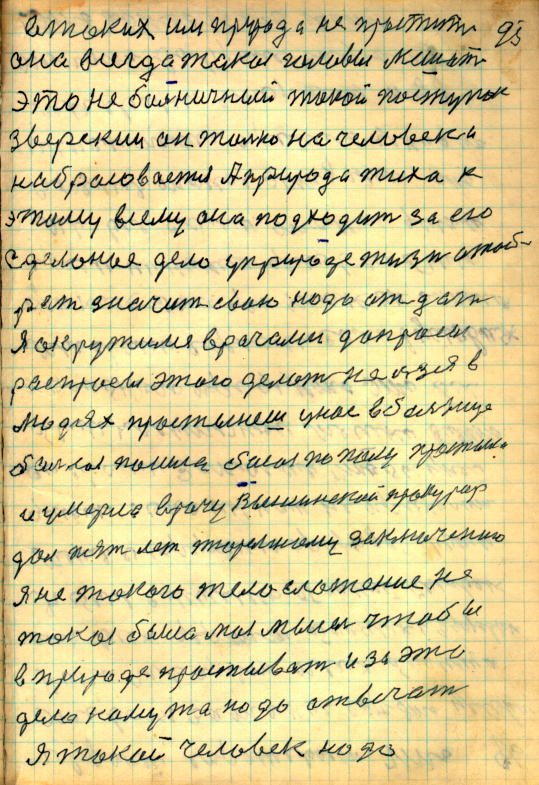 втоких им природа не простит 95
она всегда такая головы мешат
это не болничный такой поступок
зверскии он толко на человека
набрасовается А природа тиха к
этому всему она подходит за его
сделоное дело у природе жизн отоб-
рат значит свою надо отдат
Я окружился врачами допросы
распросы этого делат нелзя в
людях простынеш у нас в болнице
болная пошла босая по полу простыла
и умерла врачу Вышинской прокурор
дал пят лет тюремному заключению
я не такого тело сложение не
такая была моя мысл чтобы
в природе простыват и за это
дело кому та надо отвечат
Я такой человек надо